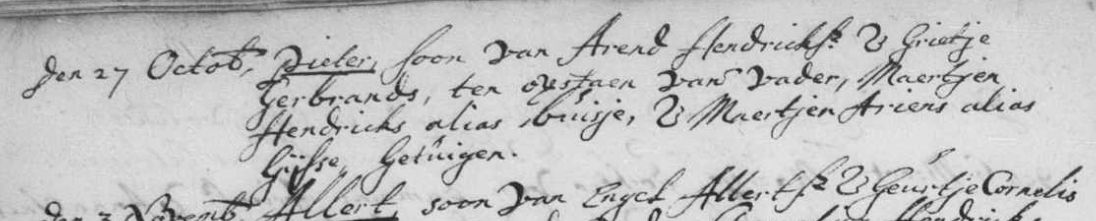 den 27 Octob. Pieter, soon van Arend Hendricks. & Grietje
Gerbrands, ten overstaen van vader, Maertjen
Hendricks alias buisje, & Maertjen Ariens alias
Getuigen.
den 3 Novemb. Allert soon van Engel Allerts. & Geurtje Cornelis